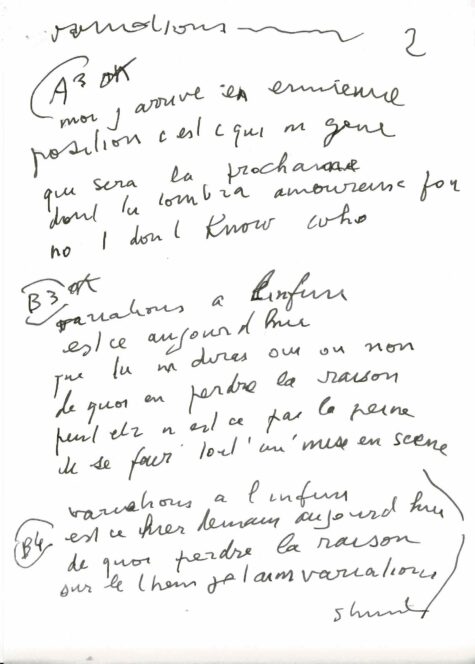 variations 2
A3 OK
moi j arrive en ennième
position c est c qui m gene
que sera la prochaine
dont tu tombra amoureuse fou
no I dont Know who
B3 OK
variations a l infini
est ce aujourd hui
que tu m diras oui ou non
de quoi en perdre la raison
peut etr n est ce pas la peine
de se fair tout un mise en scene
variations a l infini
B4 est ce hier demain aujourd hui
de quoi perdre la raison
sur le them je t aim variations
shunt